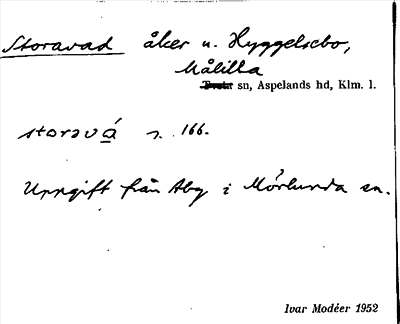 Storavad åker u. Hyggelsebo,
Målilla
sn, Aspelands hd, Klm. l.
storavá s. 166.
Uppgift från Abg i Mörlunda sn.
Ivar Modéer 1952